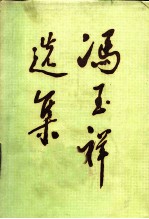 冯玉祥
选集